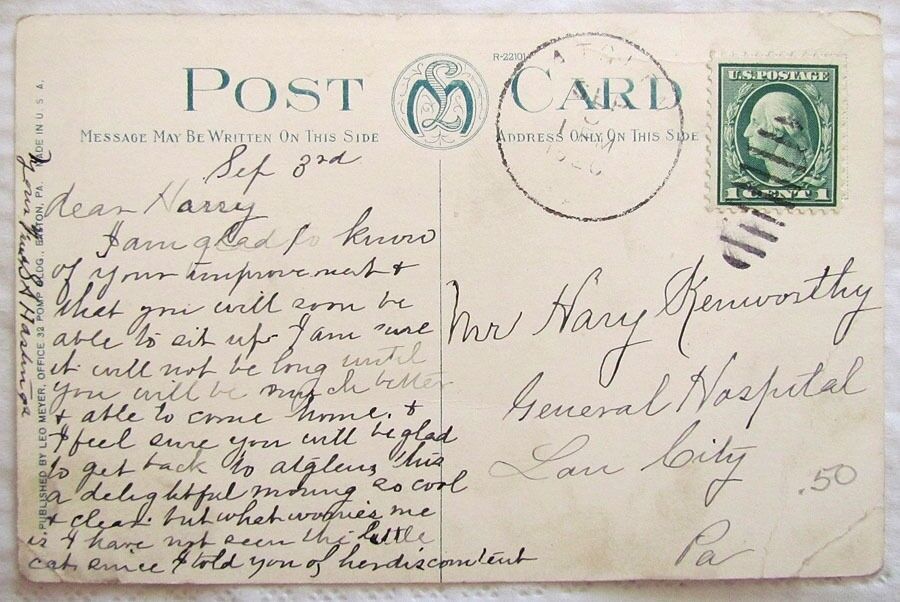 POST CARD
R-22101
MESSAGE MAY BE WRITTEN ON THIS SIDE
ADDRESS ONLY ON THIS SIDE
U.S. POSTAGE
1 CENT 1
Sep 3rd
dear Harry
I am glad to know
of your improvement &
that you will soon be
able to sit up I am sure
it will not be long until
you will be much better
& able to come home. &
I feel sure you will be glad
to get back to atglen, this
a delightful morning so cool
& clear. but what worries me
is I have not seen the little
cat since I told you of her discontent
Your friend
Mr Hary Kenworthy
General Hospital
Lan City
Pa
.50
PUBLISHED BY LEO MEYER, OFFICE 32 POMP BLDG., EASTON, PA. MADE IN U.S.A.